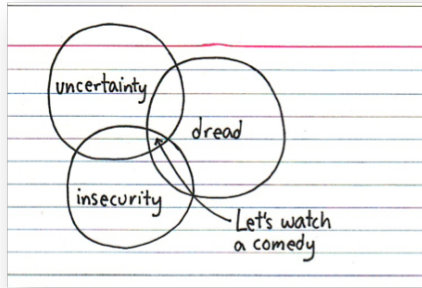 uncertainty
dread
insecurity
Let's watch
a comedy